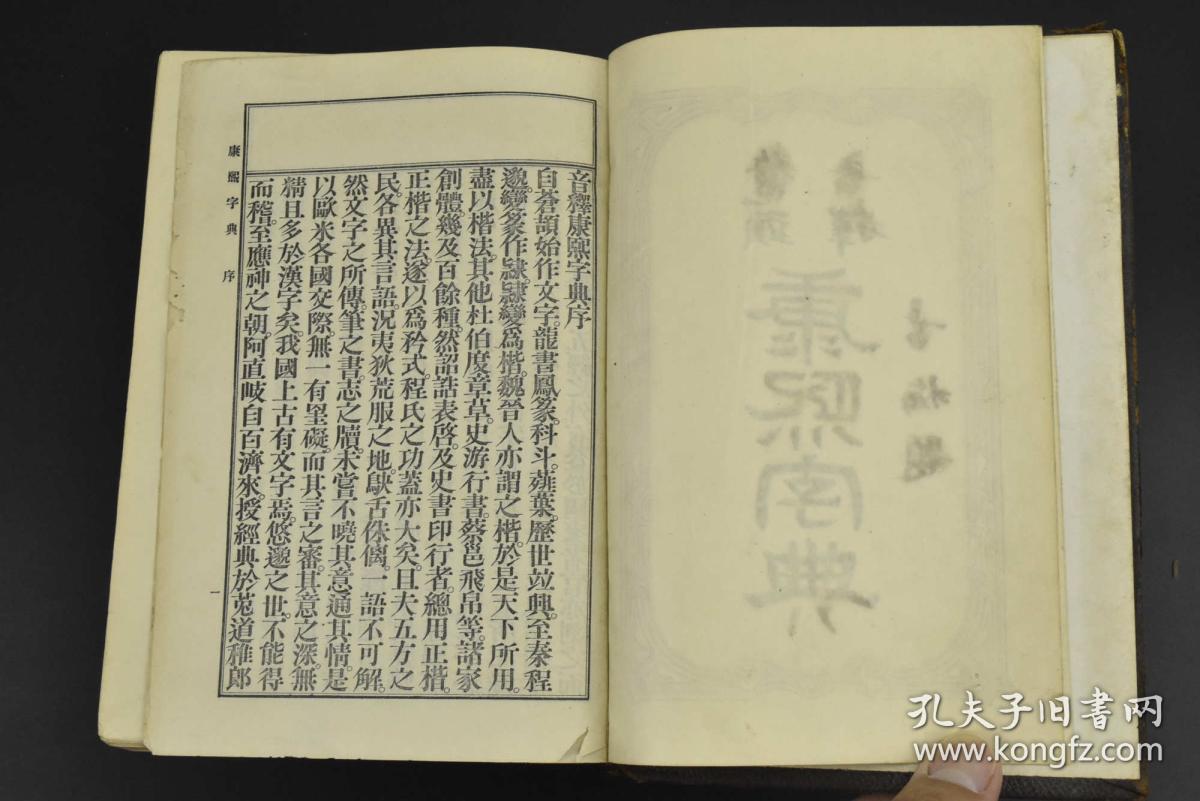 音釋康熙字典序
自蒼頡始作文字。龍書鳳篆。科斗。薤葉。歷世竝興。至秦程
邈。變篆作隸。隸變爲楷。魏晉人亦謂之楷。於是天下所用。
盡以楷法。其他杜伯度章草。史游行書。蔡邕飛帛等。諸家
創體幾及百餘種。然詔誥表啓。及史書印行者。總用正楷。
正楷之法。遂以爲矜式。程氏之功蓋亦大矣。且夫五方之
民。各異其言語。況夷狄荒服之地。鴃舌侏𠌯。一語不可解。
然文字之所傳。筆之書。志之牘。未嘗不曉其意。通其情。是
以歐米各國交際。無一有罣礙。而其言之審。其意之深。無
精且多於漢字矣。我國上古有文字焉。悠邈之世。不能得
而稽。至應神之朝。阿直岐自百濟來。授經典於菟道稚郎
康熙字典 序
一
鼇頭
音釋
康熙字典
孔夫子旧书网
www.kongfz.com